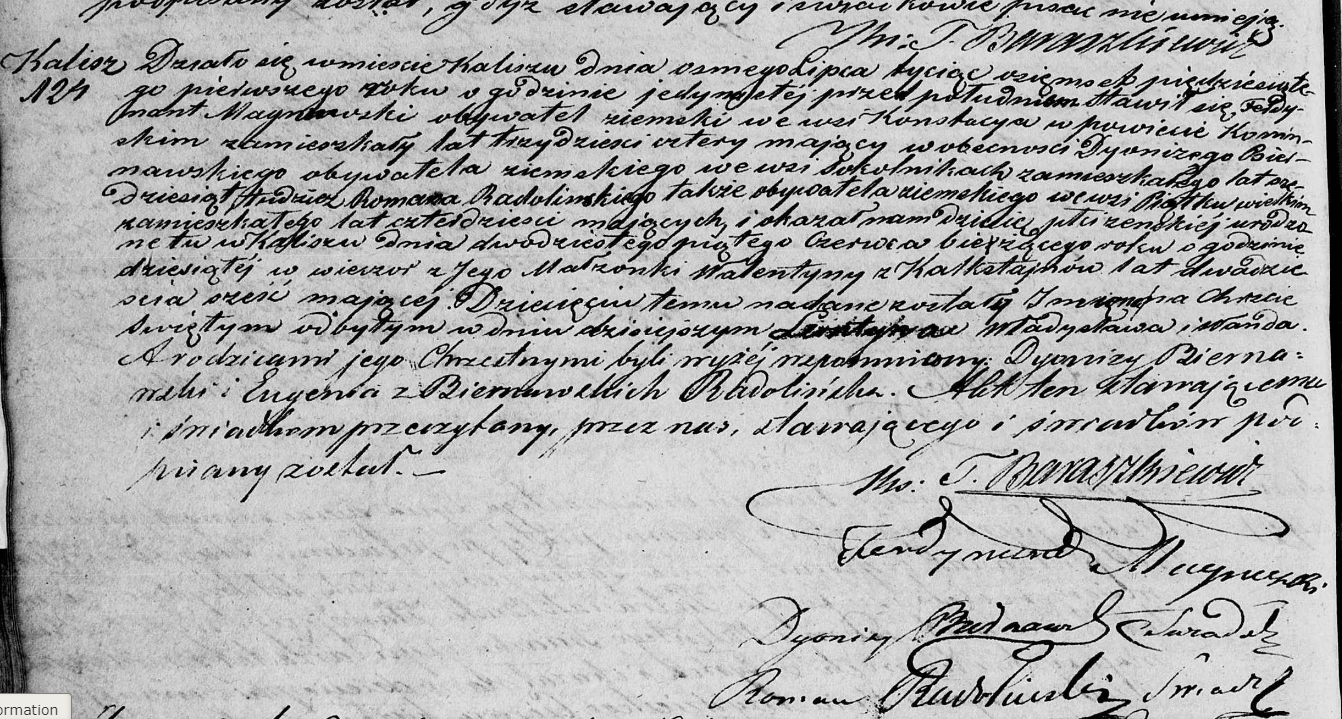 podpisany został, gdyż stawający i świadkowie pisać nie umieją.
Ks: T. Baraszkiewicz
Kalisz Działo się w mieście Kaliszu dnia osmego Lipca tysiąc ośmset piędziesiąte-
124 go pierwszego roku o godzinie jedynastej przed południem Stawił się Ferdy-
nant Magnuski obywatel ziemski we wsi Konstacya w powiecie Konin-
skim zamieszkały lat trzydzieści cztery mający w obecności Dyonizego Bier-
nawskiego obywatela ziemskiego we wsi Sokolnikach zamieszkałego lat
dziesiąt tudzież Romana Radolinskiego także obywatela ziemskiego we wsi
zamieszkałego lat czterdzieści mających, i okazał nam dziecię płci żenskiéj urodzo
ne tu w Kaliszu dnia dwudziestego piątego Czerwca bieżzącego roku o godzinie
dziesiątéj w wieczor z Jego Małzonki Walentyny z Kalkstajnów lat dwadzie
scia sześć mającej. Dziecięciu temu nadane zostały Imiona na Chrzcie
Świętym odbytym w dniu dzisiejszym Władysława i Wanda.
A rodzicami jego Chrzestnymi byli wyżéj wspomniony Dyonizy Bierna-
wski i Eugenia z Biernawskich Radolińska. Akt ten stawającemu
i świadkom przeczytany, przez nas, stawającego i świadków pod-
pisany został.—
Ks: T. Baraszkiewicz
Ferdynand Magnuski
Dyonizy Biernawski Świadek
Roman Radolinski Świadek
ormation